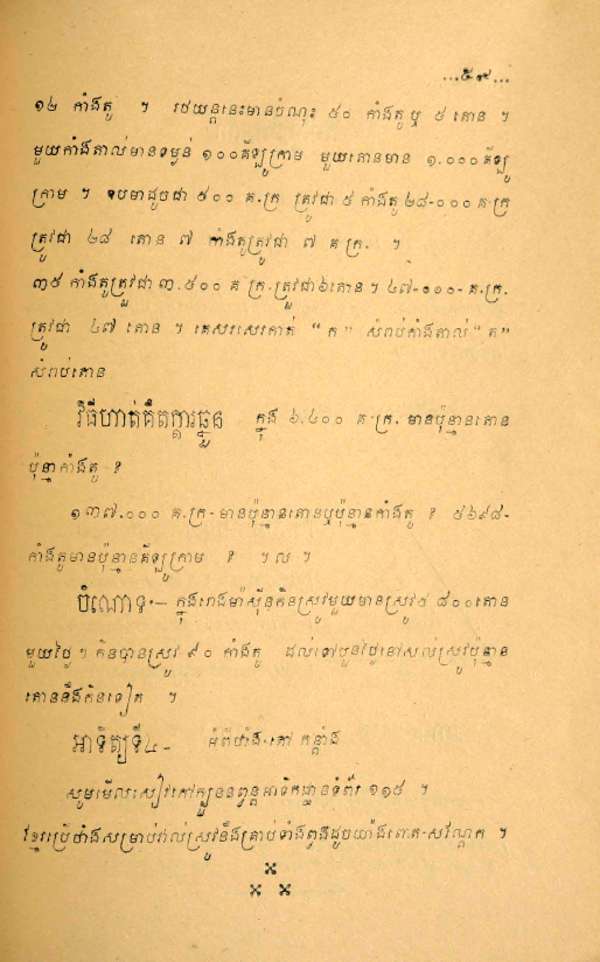 ...៥៩...
១៤ កាំងតូ ។ រថយន្តនេះមានចំណុះ ៥០ កាំងតូ ឬ ៥ តោន ។
មួយកាំងតាល់មានទម្ងន់ ១០០គីឡូក្រាម មួយតោនមាន ១.០០០គីឡូ
ក្រាម ។ ឧបមាដូចជា ៥០០ គ.ក្រ ត្រូវជា ៥ កាំងតូ ២៨-០០០ គ.ក្រ
ត្រូវជា ២៨ តោន ៧ កាំងតូត្រូវជា ៧ គ ក្រ. ។
៣៥ កាំងតូត្រូវជា ៣.៥០០ គ ក្រ.ត្រូវជា៦តោន។ ៤៧-០០០- គ.ក្រ.
ត្រូវជា ៤៧ តោន ។ គេសរសេរកាត់ “ក” សំរាប់កាំងតាល់ “ត”
សំរាប់តោន
វិធីហាត់គិតក្ដារឆ្នួន ក្នុង ៦.៤០០ គ.ក្រ. មានប៉ុន្មានតោន
ប៉ុន្មាកាំងតូ ?
១៣៧.០០០ គ.ក្រ- មានប៉ុន្មានតោនឬប៉ុន្មានកាំងតូ ? ៥៦៩៨-
កាំងតូមានប៉ុន្មានគីឡូក្រាម ? ។ល ។
ចំណោទ- ក្នុងរោងម៉ាស៊ីនកិនស្រូវមួយមានស្រូវ ៨០០តោន
មួយថ្ងៃ។ កិនបានស្រូវ ៩០ កាំងតូ ដល់ទៅបួនថ្ងៃនៅសល់ស្រូវប៉ុន្មាន
តោននឹងកិនទៀត ។
អាទិត្យទី៤- អំពីថាំង-តៅ កន្តាំង
សូមមើលសៀវភៅក្បួននព្វន្ត អាទិកដ្ឋានទំព័រ ១១៥ ។
ខ្មែរប្រើថាំងសម្រាប់វាល់ស្រូវនឹងគ្រាប់ទាំងពួងដូចយ៉ាងពោត-សណ្ដែក ។